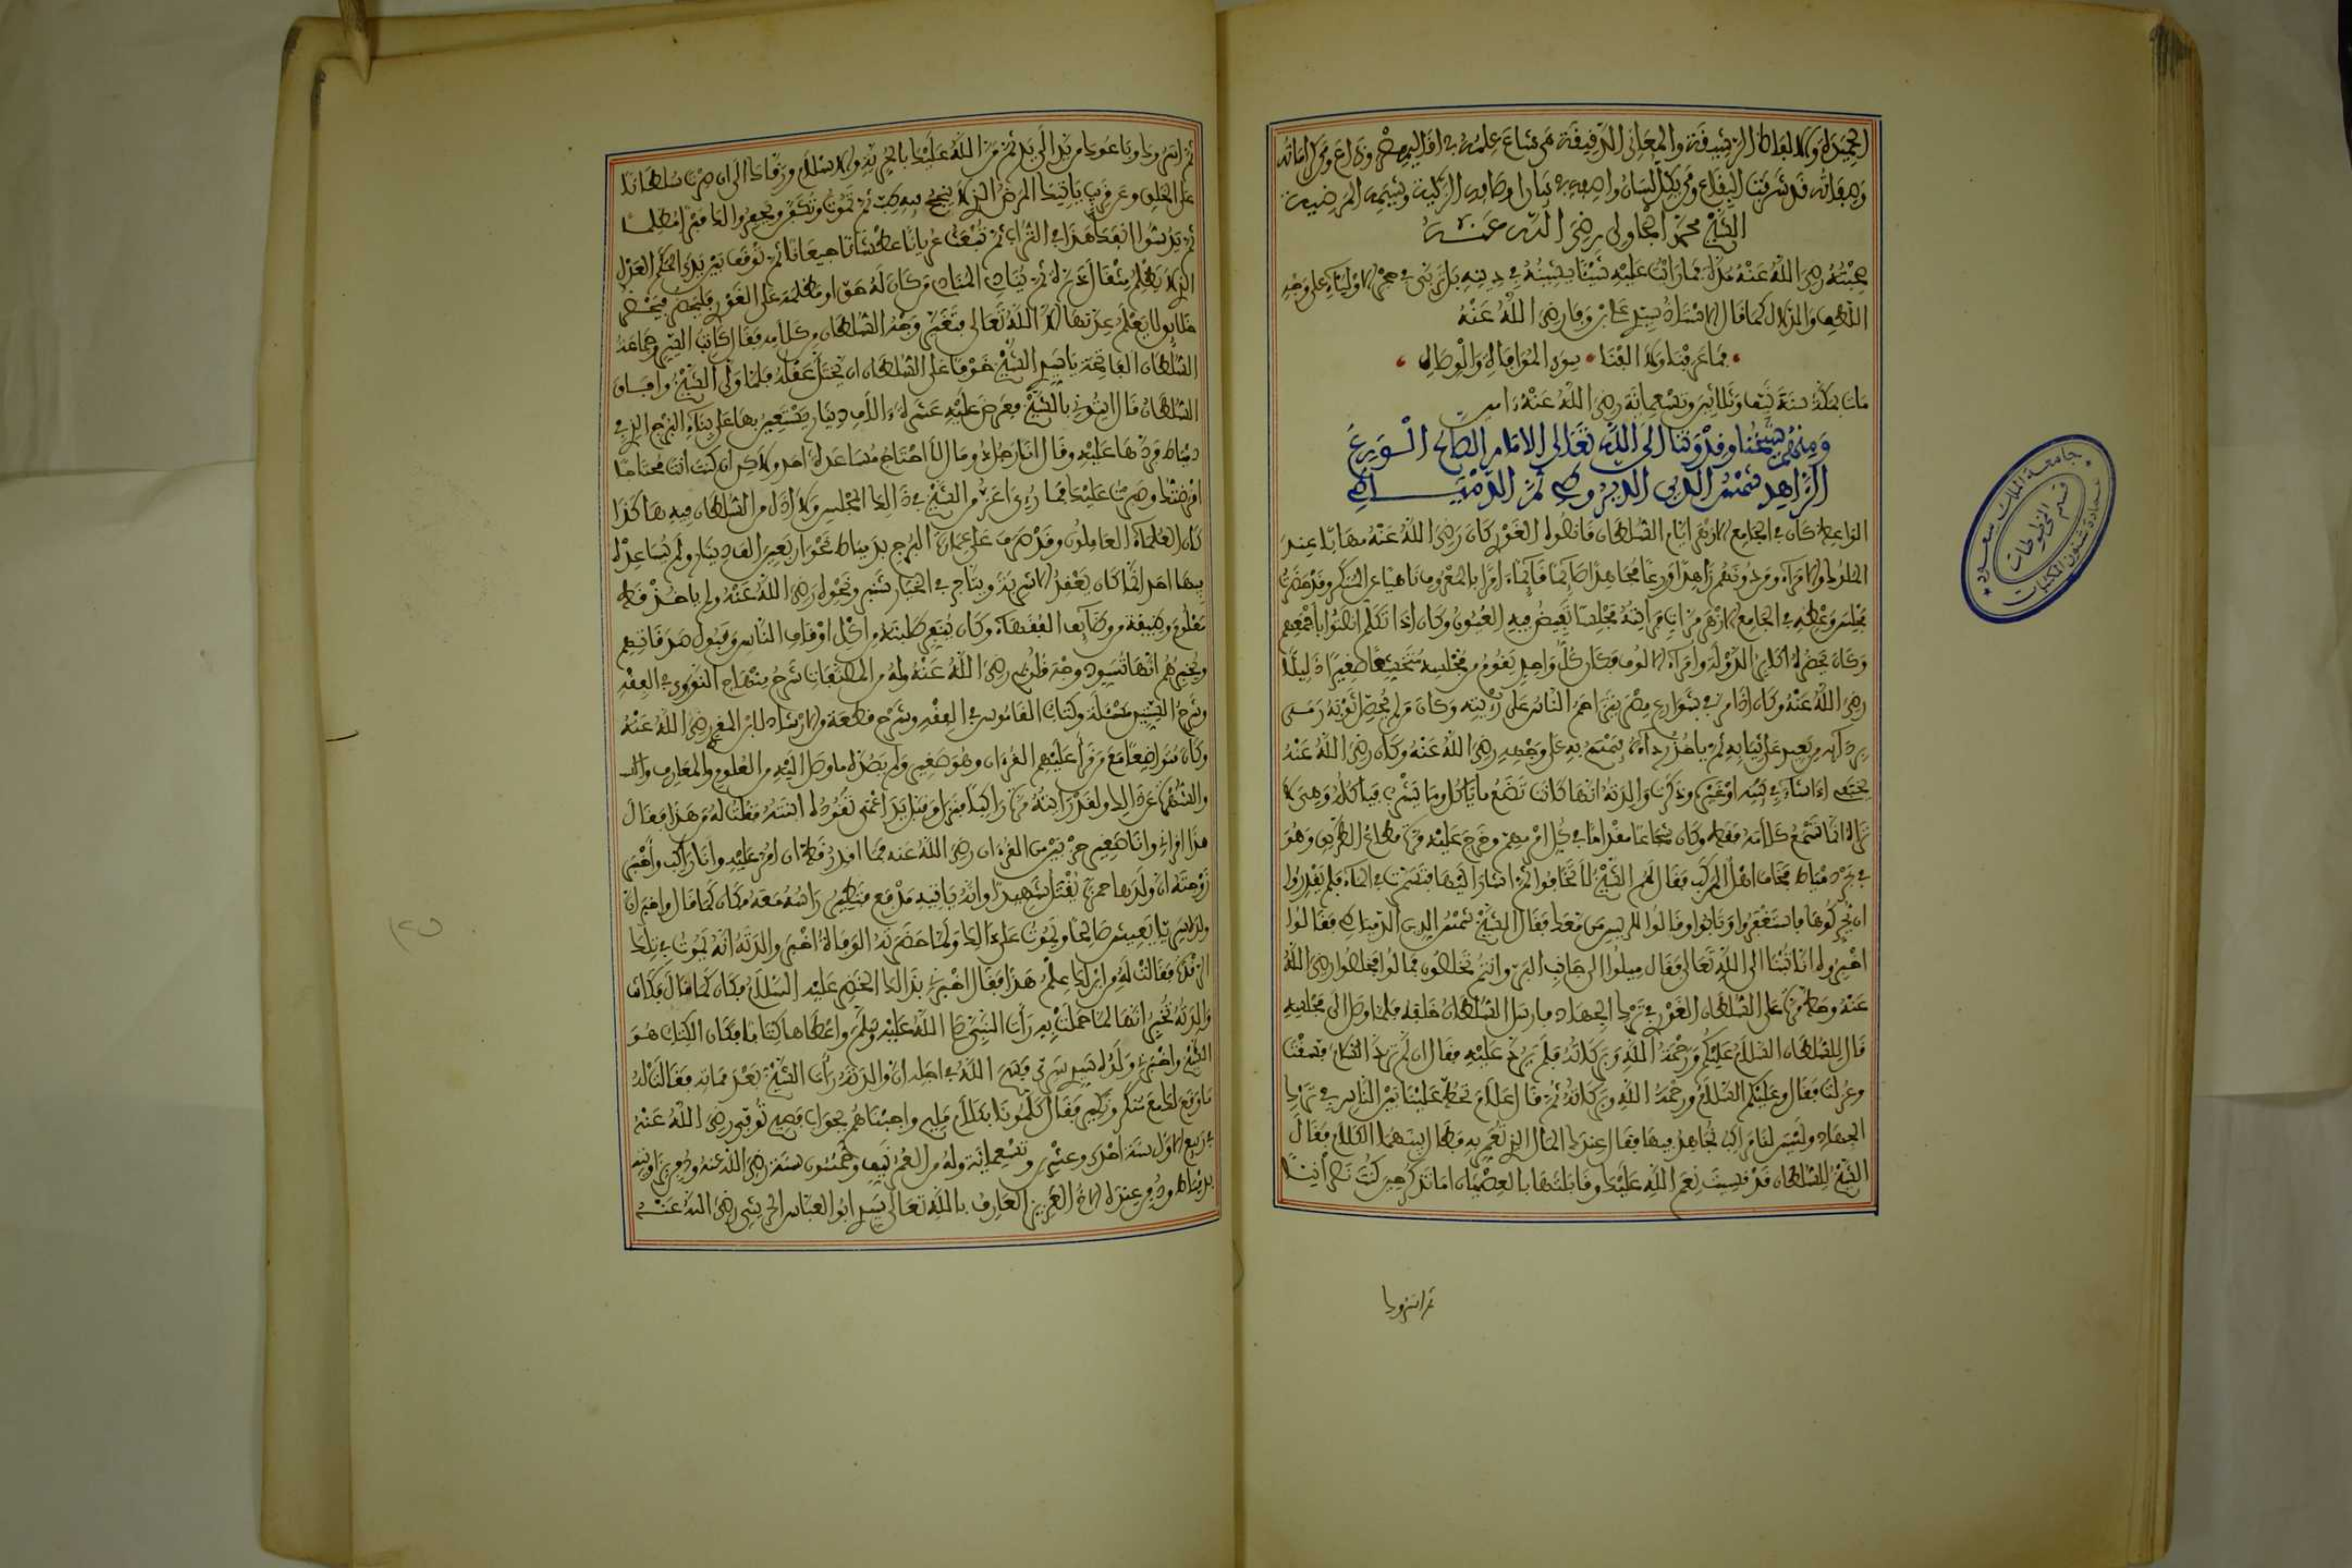 الجيدة والالفاظ الرشيقة والمعاني الدقيقة من شاع علمه في اقاليم مصر وذاع وكراماته
وصفاته قد شرفت البقاع ومن يكل لسان واصفه في سارا وصافه الزكية وشيمه المرضية
الشيخ محمد الجاولي رضي الله عنه
صحبته رضي الله عنه مدة فما رأيت عليه شيئا يشينه في دينه بل تربى في حجر الاولياء على وجه
اللطف والدلال كما قال الاستاذ سيدي علي بن وفا رضي الله عنه
فما عرفنا ولا الفنا سوى الموافاة والوصال
مات بمكة سنة نيف وثلاثين وتسعمائة رضي الله عنه امين
ومنهم شيخنا وقدوتنا الى الله تعالى الامام الصالح الورع
الزاهد شمس الدين الديروطي ثم الدمياطي
الواعظ كان في الجامع الازهر ايام السلطان قانصوه الغوري كان رضي الله عنه مهابا عند
الملوك والامراء ومن دونهم زاهدا ورعا مجاهدا صائما قائما امرا بالمعروف ناهيا عن المنكر وقد حضرت
مجلس وعظه في الجامع الازهر مرات فرأيته مجلسا تفيض فيه العيون وكان اذا تكلم انصتوا باجمعهم
وكان يحضره اكابر الدولة وامراء الالوف فكان كل واحد يقوم من مجلسه متخشعا صغيرا ذليلا
رضي الله عنه وكان اذا مر في شوارع مصر يتزاحم الناس على رؤيته وكان من لم يحصل ثوبه رمى
بردائه من بعيد على ثيابه ثم ياخذ رداءه فيمسح به على وجهه رضي الله عنه وكان رضي الله عنه
يختفي اذا شاء في بيته او غيره وذكرت والدته انها كانت تضع ما ياكل وما يشرب فياكل وهي لا
تراه انما تسمع كلامه فقط وكان شجاعا مقداما في كل امر مهم وخرج عليه مرة قطاع الطريق وهو
في بحر دمياط فخاف اهل المركب فقال لهم الشيخ لا تخافوا ثم اشار اليها فتسمرت في الماء فلم يقدروا
ان يحركوها فاستغفروا وتابوا وقالوا للريس من معك فقال الشيخ شمس الدين الدمياطي فقالوا
اخبروه اننا تبنا الى الله تعالى فقال ميلوا الى جانب البر وانتم تخلصون فمالوا فخلصوا رضي الله
عنه وحط مرة على السلطان الغوري في ترك الجهاد فارسل السلطان خلفه فلما وصل الى مجلسه
قال للسلطان السلام عليكم ورحمة الله وبركاته فلم يرد عليه فقال ان لم ترد السلام فسقت
وعزلت فقال وعليكم السلام ورحمة الله وبركاته ثم قال علام تحط علينا بين الناس في ترك
الجهاد وليس لنا مراكب نجاهد فيها فقال عندك المال الذي تعمر به فطال بينهما الكلام فقال
الشيخ للسلطان قد نسيت نعم الله عليك وقابلتها بالعصيان اما تذكر حين كنت نصرانيا
ثم اسروك
ثم اسروك وباعوك من يد الى يد ثم من الله عليك بالحرية والاسلام ورقاك الى ان صرت سلطانا
على الخلق وعن قريب ياتيك المرض الذي لا ينجح فيه طب ثم تموت وتكفن ويحفروا لك قبرا مظلما
ثم يدسوا انفك هذا في التراب ثم تبعث عريانا عطشانا جيعانا ثم توقف بين يدي الحكم العدل
الذي لا يظلم مثقال ذرة ثم ينادي المنادي من كان له حق او مظلمة على الغوري فليحضر فيحضر
خلائق لا يعلم عدتها الا الله تعالى فتغير وجه السلطان من كلامه فقال كاتب السر وجماعة
السلطان الفاتحة يا سيدي الشيخ خوفا على السلطان ان يختل عقله فلما ولى الشيخ وافاق
السلطان قال ائتوني بالشيخ فعرض عليه عشرة الاف دينار يستعين بها على بناء البرج الذي في
دمياط فردها عليه وقال انا رجل ذو مال لا احتاج مساعدة احد ولكن ان كنت انت محتاجا
اقرضتك وصبرت عليك فما رؤي اعز من الشيخ في ذلك المجلس ولا اذل من السلطان فيه هكذا
كان العلماء العاملون وقد صرف على عمارة البرج بدمياط نحو اربعين الف دينار ولم يساعده
فيها احد انما كان يعقد الاشربة ويتاجر في الخيار شنبر ونحوه رضي الله عنه ولم ياخذ قط
معلوم وظيفة من وظائف الفقهاء وكان ينفر طلبته من اكل اوقاف الناس وقبول صدقاتهم
ويخبرهم انها تسود وجه قلوبهم رضي الله عنه وله من المصنفات شرح منهاج النووي في الفقه
وشرح الستين مسئلة وكتاب القاموس في الفقه وشرح قطعة من الارشاد لابن المقري رضي الله عنه
وكان متواضعا مع من قرأ عليهم القرءان وهو صغير ولم يصده ما وصل اليه من العلوم والمعارف
والشهرة عن ذلك ولقد رأيته مرة راكبا فنزل وقبل يد اعمى تقوده ابنته فقلت له من هذا فقال
هذا اقراني وانا صغير حزبين من القرءان رضي الله عنه فما اقدر قط ان امر عليه وانا راكب واخبر
زوجته ان ولدها حمزة يقتل شهيدا وانه ياتيه مدفع فتطير راسه معه فكان كما قال واخبر ان
ولده سريا يعيش صالحا ويموت على ذلك ولما حضرته الوفاة اخبر والدته انه يموت في تلك
الرقدة فقالت له من اين لك علم هذا فقال اخبرني بذلك الخضر عليه السلام فكان كما قال فكانت
والدته تخبر انها لما حملت به رأت النبي صلى الله عليه وسلم واعطاها كتابا فكان الكتاب هو
الشيخ واخبرني ولده سيدي سري فسح الله في اجله ان والدته رأت الشيخ بعد مماته فقالت له
ما وقع لك مع منكر ونكير فقال كلمونا بكلام مليح واجبناهم بجواب فصيح توفي رضي الله عنه
في ربيع الاول سنة احدى وعشرين وتسعمائة وله من العمر نيف وخمسون سنة رضي الله عنه ودفن بزاويته
بدمياط ودفن عنده الاخ العزيز العارف بالله تعالى سيدي ابو العباس الحريثي رضي الله عنه
جامعة الملك سعود
قسم المخطوطات
عمادة شئون المكتبات